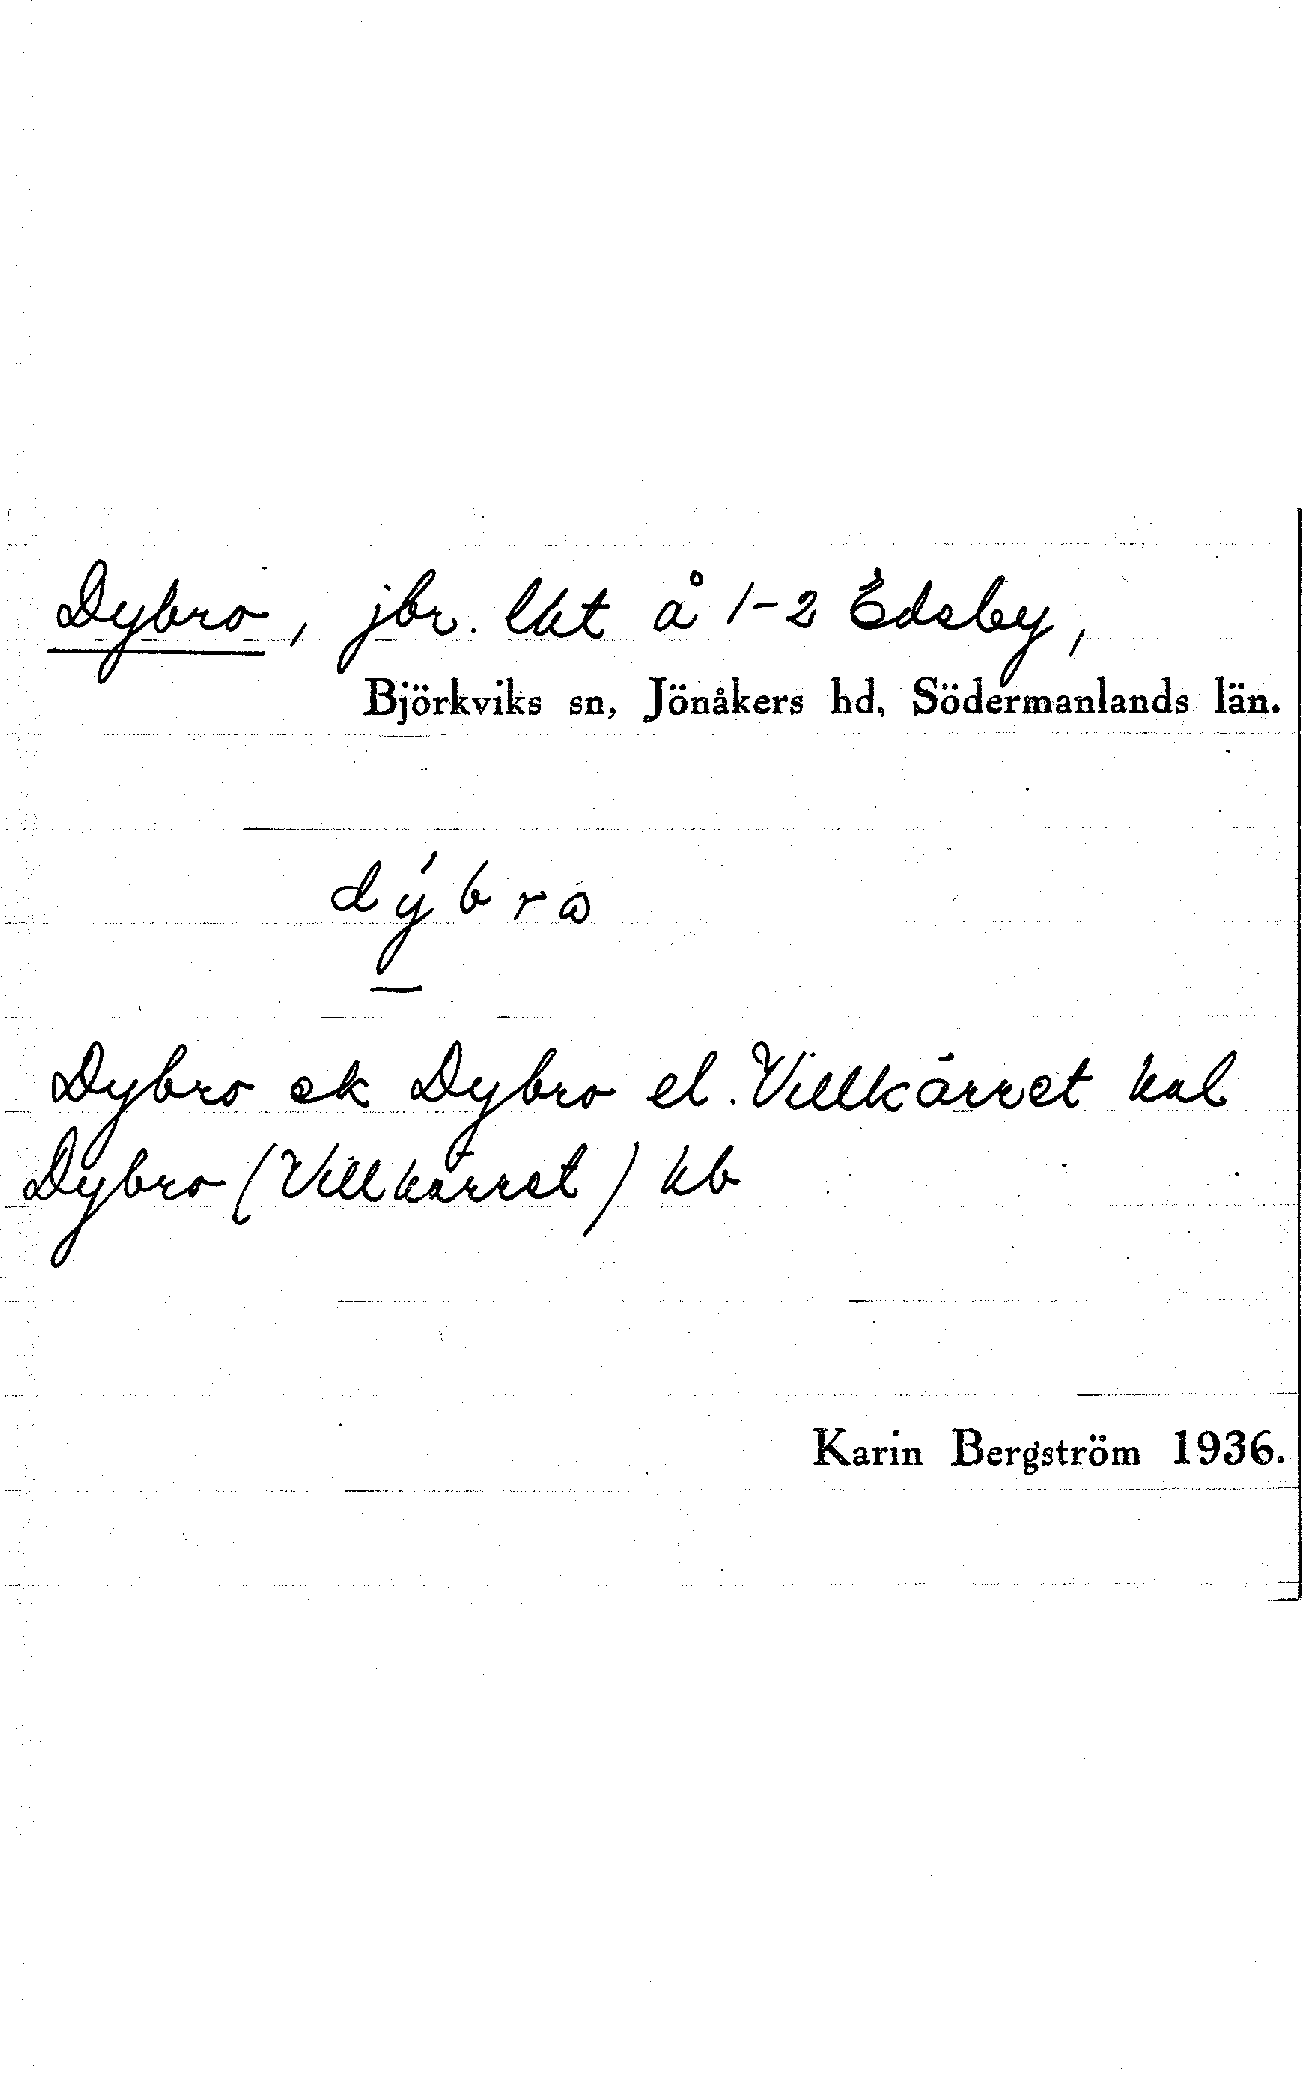 Dybro, jbr. lht å 1-2 Edeby,
Björkviks sn, Jönåkers hd, Södermanlands län.
dýbro
Dybro ek Dybro el. Villkärret hal
Dybro (Villkärret) kb
Karin Bergström 1936.